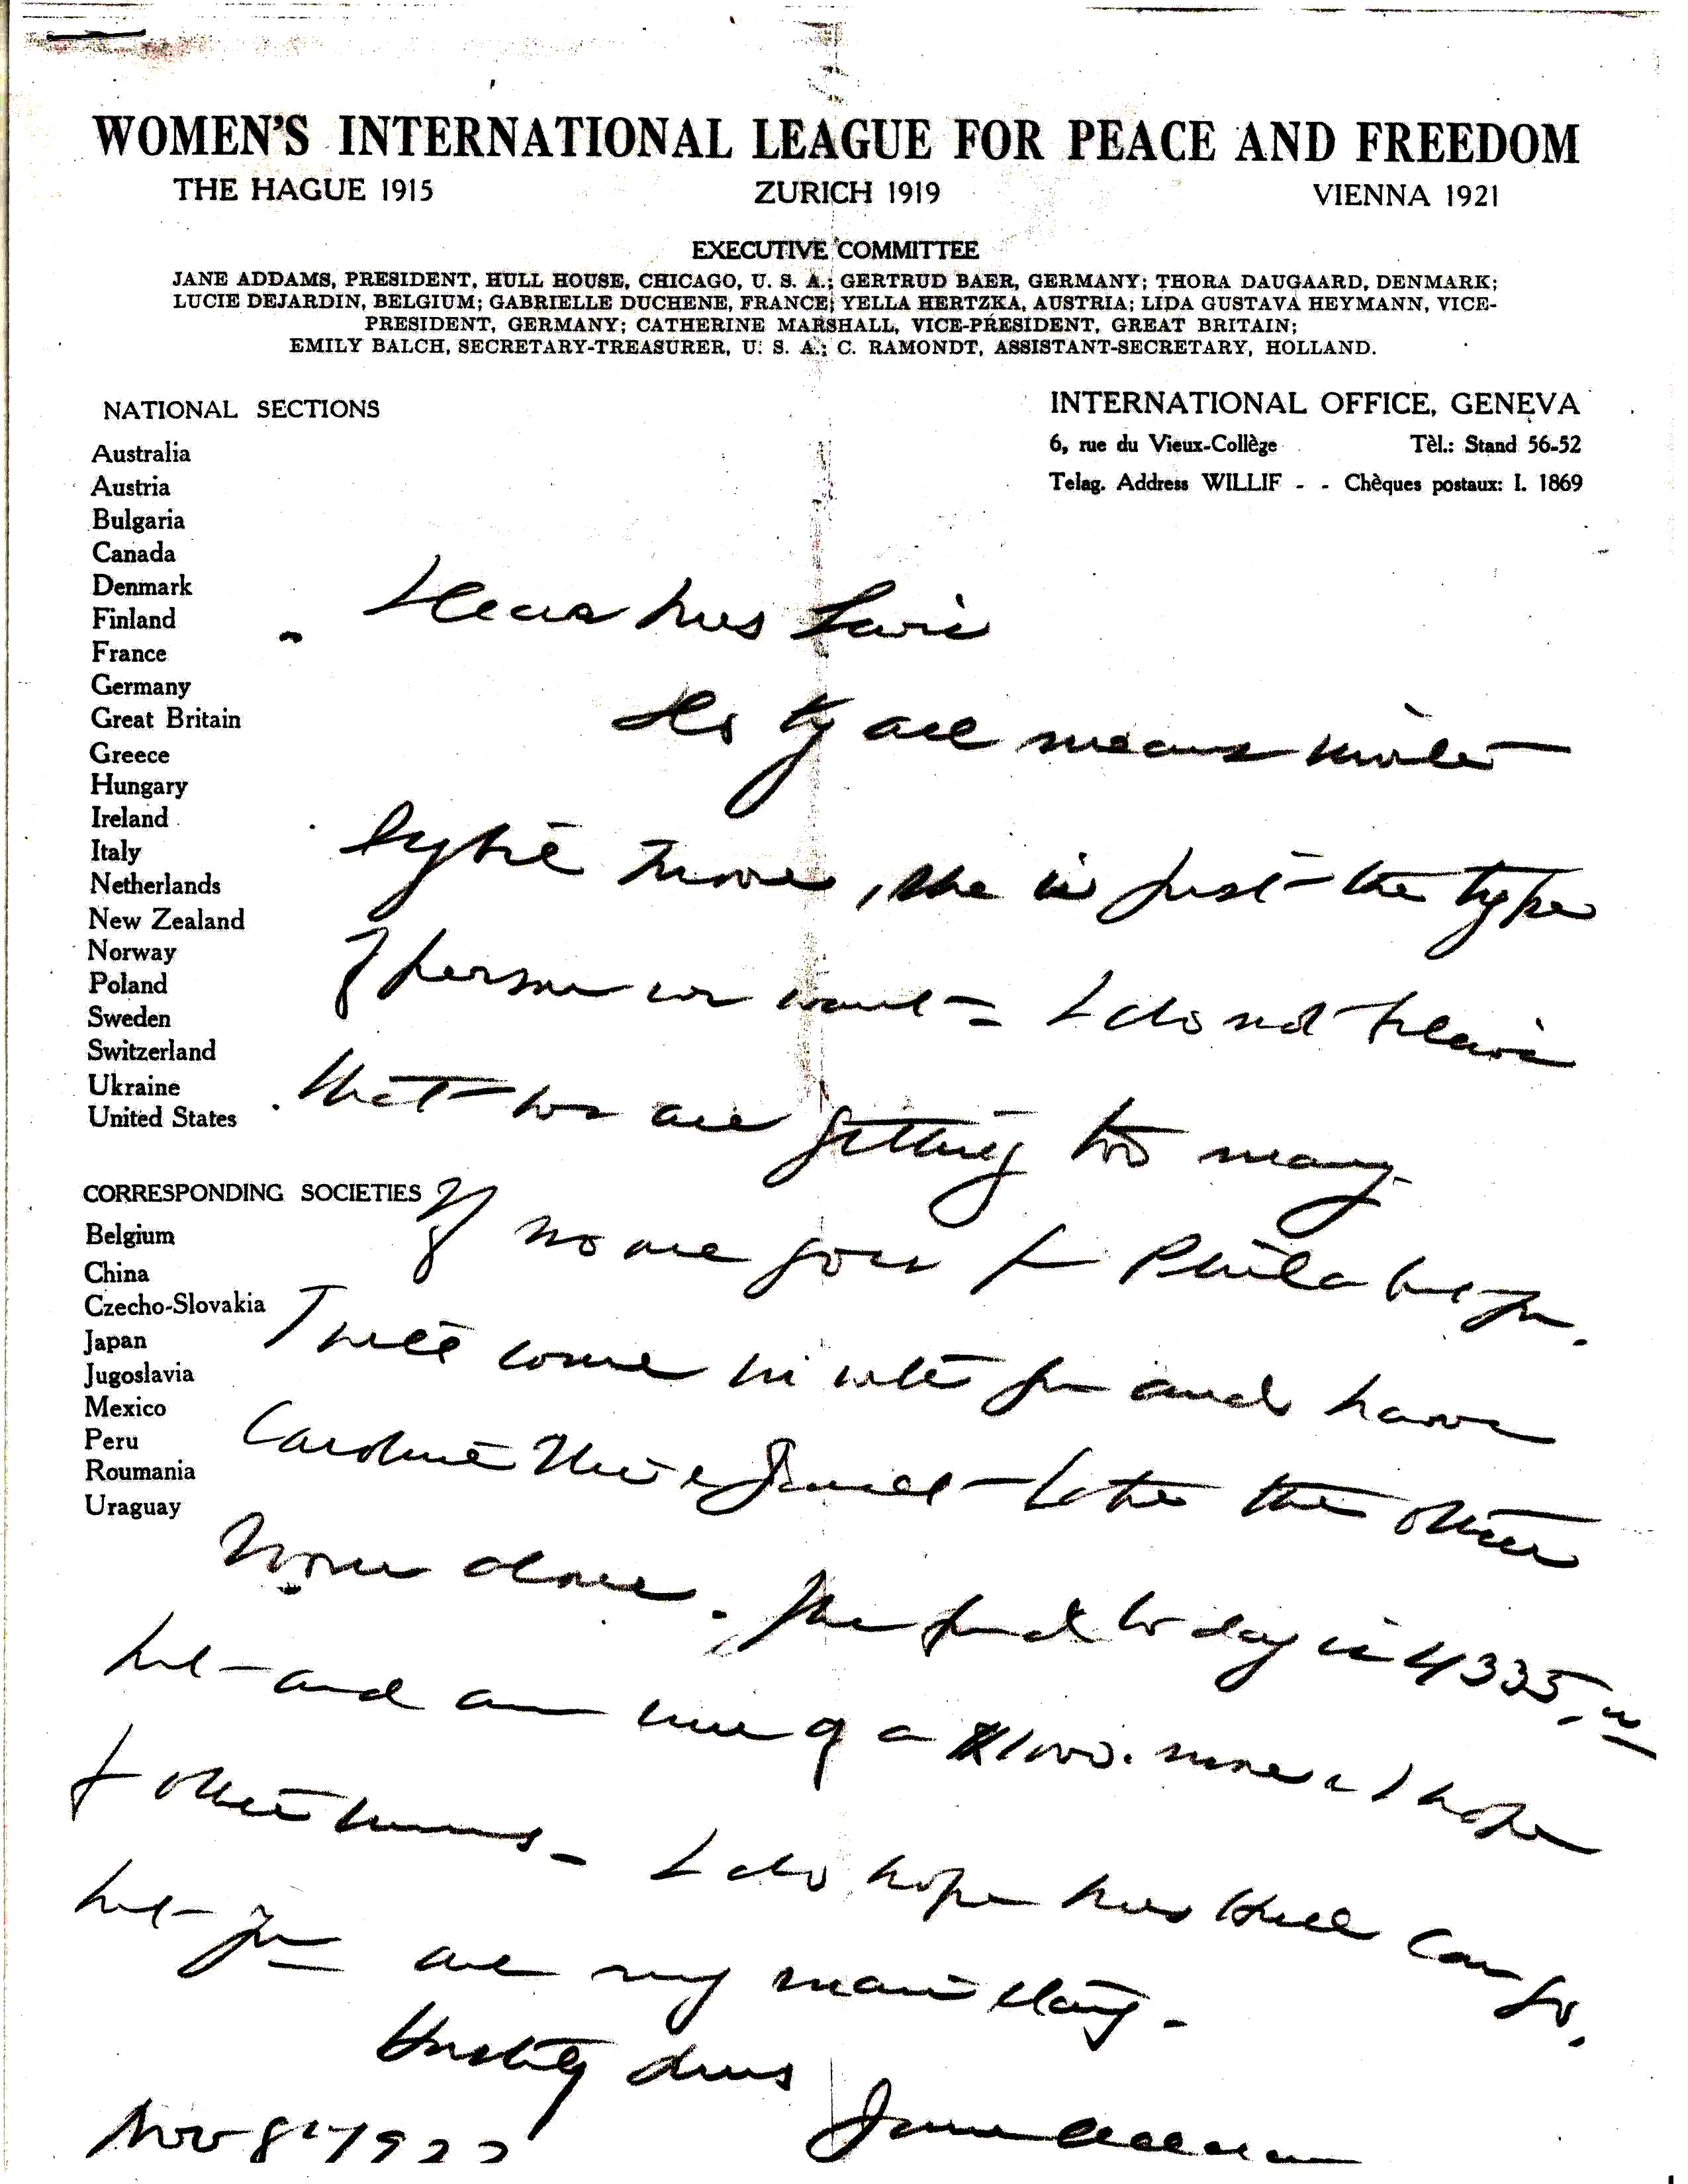 WOMEN'S INTERNATIONAL LEAGUE FOR PEACE AND FREEDOM
THE HAGUE 1915 ZURICH 1919 VIENNA 1921
EXECUTIVE COMMITTEE
JANE ADDAMS, PRESIDENT, HULL HOUSE, CHICAGO, U. S. A.; GERTRUD BAER, GERMANY; THORA DAUGAARD, DENMARK;
LUCIE DEJARDIN, BELGIUM; GABRIELLE DUCHENE, FRANCE; YELLA HERTZKA, AUSTRIA; LIDA GUSTAVA HEYMANN, VICE-
PRESIDENT, GERMANY; CATHERINE MARSHALL, VICE-PRESIDENT, GREAT BRITAIN;
EMILY BALCH, SECRETARY-TREASURER, U. S. A.; C. RAMONDT, ASSISTANT-SECRETARY, HOLLAND.
INTERNATIONAL OFFICE, GENEVA
6, rue du Vieux-Collège Tèl.: Stand 56-52
Telag. Address WILLIF - - Chèques postaux: I. 1869
NATIONAL SECTIONS
Australia
Austria
Bulgaria
Canada
Denmark
Finland
France
Germany
Great Britain
Greece
Hungary
Ireland
Italy
Netherlands
New Zealand
Norway
Poland
Sweden
Switzerland
Ukraine
United States
CORRESPONDING SOCIETIES
Belgium
China
Czecho-Slovakia
Japan
Jugoslavia
Mexico
Peru
Roumania
Uraguay
Dear Mrs Lewis
Do by all means invite
Sybil , she is just the type
of person we want - I do not believe
that we are getting too many.
If no one goes to Phila but you.
I will come in with you and have
Caroline there & - the other
alone. The fund to day is 4335.00
but and am sure of a $1000. more & I hope
for other sums - I do hope Mrs Hull can go.
but you are my main stay.
Hastily yours Jane Addams
Nov 8" 1922